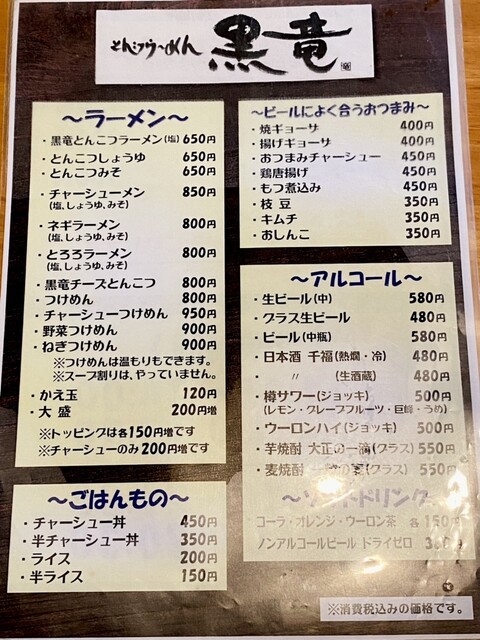 とんこつらーめん 黒竜
～ラーメン～
・黒竜とんこつラーメン(塩) 650円
・とんこつしょうゆ 650円
・とんこつみそ 650円
・チャーシューメン 850円
(塩、しょうゆ、みそ)
・ネギラーメン 800円
(塩、しょうゆ、みそ)
・とろろラーメン 800円
(塩、しょうゆ、みそ)
・黒竜チーズとんこつ 800円
・つけめん 800円
・チャーシューつけめん 950円
・野菜つけめん 900円
・ねぎつけめん 900円
※つけめんは温もりもできます。
※スープ割りは、やっていません。
・かえ玉 120円
・大 盛 200円増
※トッピングは各150円増です
※チャーシューのみ200円増です
～ごはんもの～
・チャーシュー丼 450円
・半チャーシュー丼 350円
・ライス 200円
・半ライス 150円
～ビールによく合うおつまみ～
・焼ギョーザ 400円
・揚げギョーザ 400円
・おつまみチャーシュー 450円
・鶏唐揚げ 450円
・もつ煮込み 450円
・枝 豆 350円
・キムチ 350円
・おしんこ 350円
～アルコール～
・生ビール(中) 580円
・グラス生ビール 480円
・ビール(中瓶) 580円
・日本酒 千福(熱燗・冷) 480円
・ 〃 (生酒蔵) 480円
・樽サワー(ジョッキ) 500円
(レモン・グレープフルーツ・巨峰・うめ)
・ウーロンハイ(ジョッキ) 500円
・芋焼酎 大正の一滴(グラス) 550円
・麦焼酎 (グラス) 550円
～ソフトドリンク
コーラ・オレンジ・ウーロン茶 各150円
ノンアルコールビール ドライゼロ 円
※消費税込みの価格です。